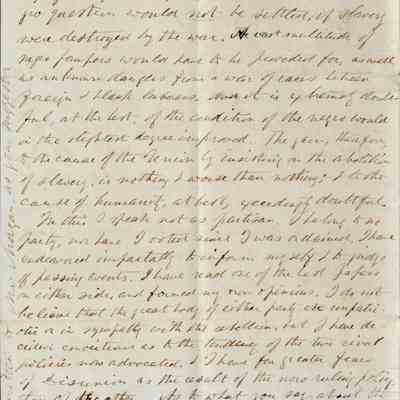 gro question would not be settled, if slavery
were destroyed by the war. A vast multitude of
negro paupers would have to be provided for, as well
as unknown dangers from a war of races between
foreign & black laborers. And it is extremely doubt-
ful, at the best, if the condition of the negro would
in the slightest degree improved. The gain, therefore,
to the cause of the Union by insisting on the abolition
of slavery, is nothing & worse than nothing; & to the
cause of humanity, at best, exceedingly doubtful.
In this I speak not as partisan. I belong to no
party, nor have I voted since I was ordained. I have
endeavored impartially to inform myself & to judge
of passing events. I have read one of the best papers
on either side, and formed my own opinions. I do not
believe that the great body of either party are unpatri-
otic or in sympathy with the rebellion, but I have de-
cided convictions as to the tendency of the two rival
policies now advocated. & I have far greater fears
of disunion as the result of the now ruling policy
than of other. As to what you say about the